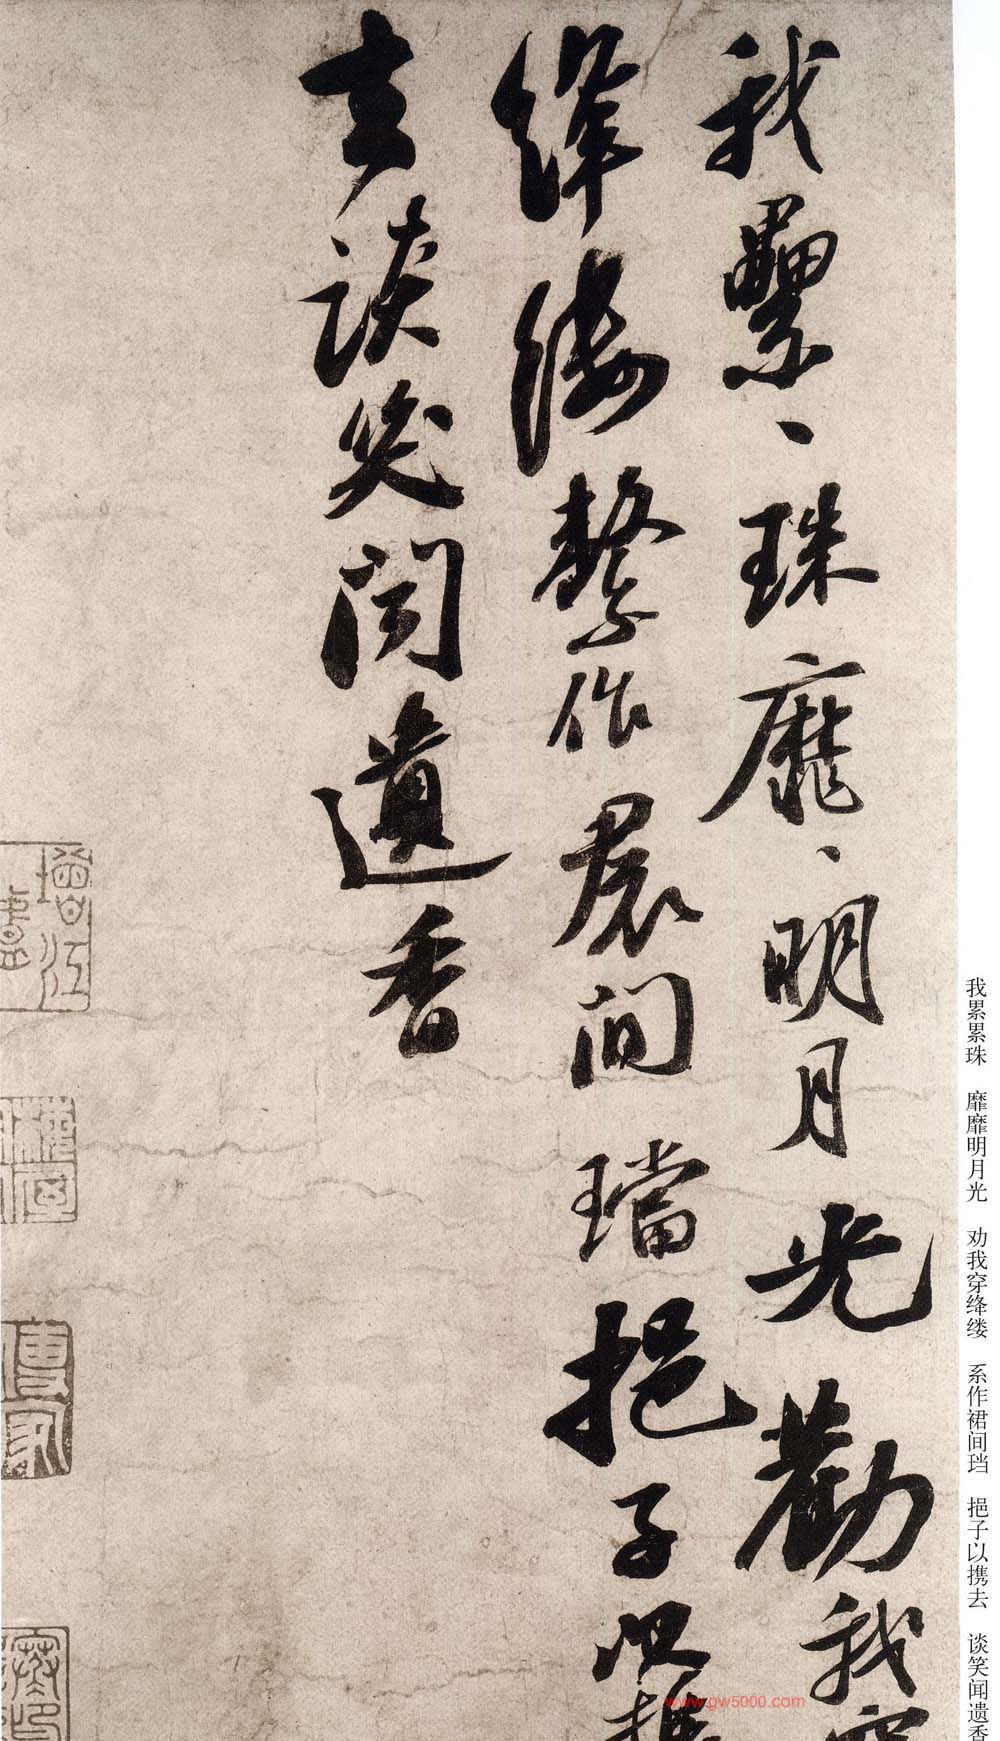 我纍、珠靡、明月光勸我穿
絳縷繫作裙間璫挹子以攜
去談笑聞遺香
我累累珠 靡靡明月光 劝我穿绛缕 系作裙间珰 挹子以携去 谈笑闻遗香
www.gw5000.com